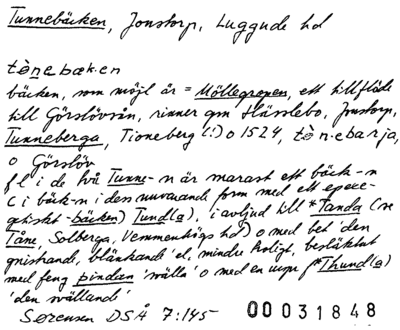 Tunnebäcken, Jonstorp, Luggude hd
tènebæken
bäcken, som möjl är = Möllegropen, ett tillflöde
till Görslövsån, rinner gm Hässlebo, Jonstorp,
Tunneberga, Tioneberg (!) o 1524, tènebarja,
o Görslöv
fl i de två Tunne-n är snarast ett bäck-n
(i bäck-n i dess nuvarande form med ett epexe-
getiskt -bäcken) Tund(a), i avljud till *Tanda (se
Tåne, Solberga, Vemmenhögs hd) o med bet 'den
gnistrande, blänkande' el, mindre troligt, besläktat
med feng pindan 'svälla' o med en urspr f *Thund(a)
'den svällande'
Sørensen DSÅ 7:145 00031848